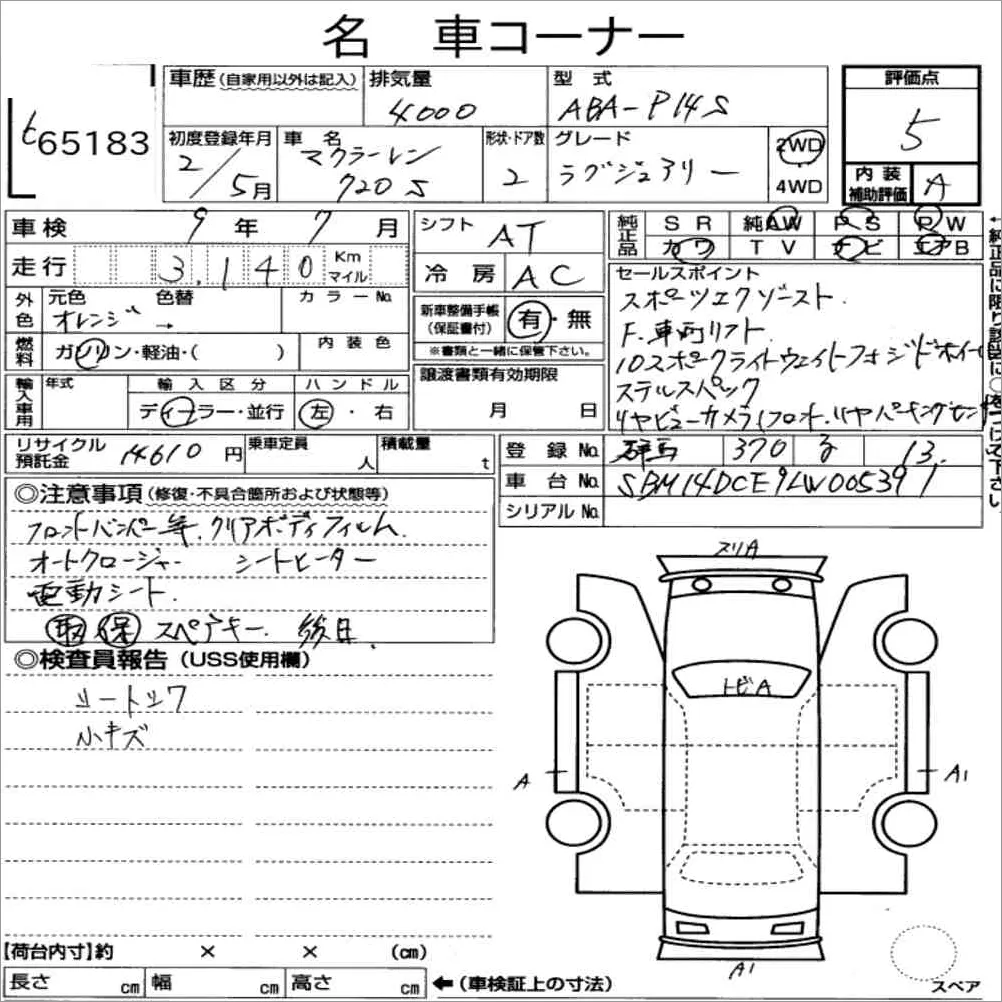 名 車コーナー
t65183
車歴(自家用以外は記入)
排気量 4000
型式 ABA-P14S
評価点 5
初度登録年月 2/5月
車名 マクラーレン 720S
形状・ドア数 2
グレード ラグジュアリー
2WD
4WD
内装補助評価 A
車検 9年 7月
シフト AT
純正品 SR 純AW PS PW
カワ TV ナビ エアB
走行 3,140 Km マイル
冷房 AC
セールスポイント
スポーツエクゾースト.
F.車両リフト
10スポークライトウェイトフォジドホイール
ステルスパック
リヤビューカメラ(フロント.リヤパーキングセンサ
外色 元色 オレンジ 色替 → カラーNo.
新車整備手帳(保証書付) 有・無
※書類と一緒に保管下さい。
燃料 ガソリン・軽油・( ) 内装色
輸入車用 年式 輸入区分 ディーラー・並行 ハンドル 左・右
譲渡書類有効期限 月 日
リサイクル預託金 14610円
乗車定員 人
積載量 t
登録No. 群馬 370 る 13.
車台No. SBM14DCE9LW005391
シリアルNo.
◎注意事項(修復・不具合箇所および状態等)
フロントバンパー等.クリアボディフィルム
オートクロージャー シートヒーター
電動シート.
取 保 スペアキー. 後日.
◎検査員報告(USS使用欄)
シートスワ
小キズ
スリA
トビA
A
A1
A1
スペア
【荷台内寸】約 × × (cm)
長さ cm 幅 cm 高さ cm ←(車検証上の寸法)